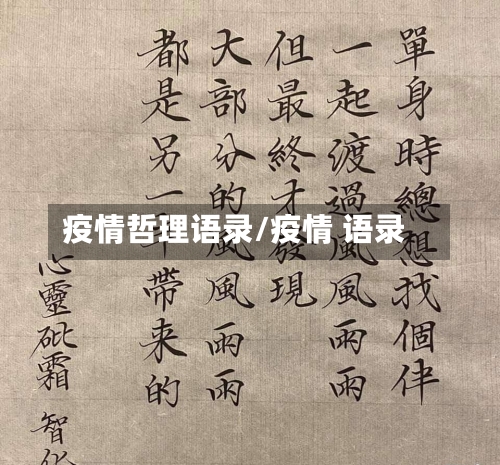 單身時總想找個伴
一起渡過風風雨雨
但最終才發現
大部分的風風雨雨
都是另一半帶来的
心靈砒霜 智化
疫情哲理语录/疫情 语录